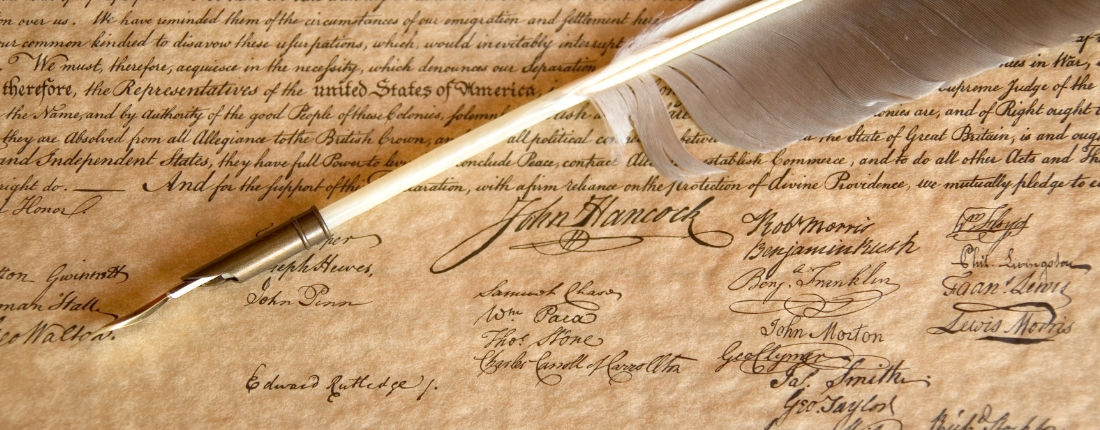 on over us. We have reminded them of the circumstances of our emigration and settlement here
our common kindred to disavow these usurpations, which, would inevitably interrupt
We must, therefore, acquiesce in the necessity, which denounces our Separation
in War, in
therefore, the Representatives of the united States of America,
Supreme Judge of the
the Name, and by Authority of the good People of these Colonies, solemn
are, and of Right ought t
they are Absolved from all Allegiance to the British Crown,
all political co
the State of Great Britain, is and oug
and Independent States, they have full Power to lev
conclude Peace, contract All
establish Commerce, and to do all other Acts and Th
right do. — And for the support of this
aration, with a firm reliance on the protection of divine Providence, we mutually pledge to e
d Honor.
John Hancock
per
ton Gwinnett
seph Hewes,
man Hall
John Penn
Geo Walton.
Edward Rutledge /.
Samuel Chase
Wm Paca
Thos Stone
Charles Carroll of Carrollton
Robt Morris
Benjamin Rush
Benj. Franklin
John Morton
Geo Clymer
Jas. Smith
Geo. Taylor
Wm Floyd
Phil. Livingston
Frans. Lewis
Lewis Morris
Richd Stockton